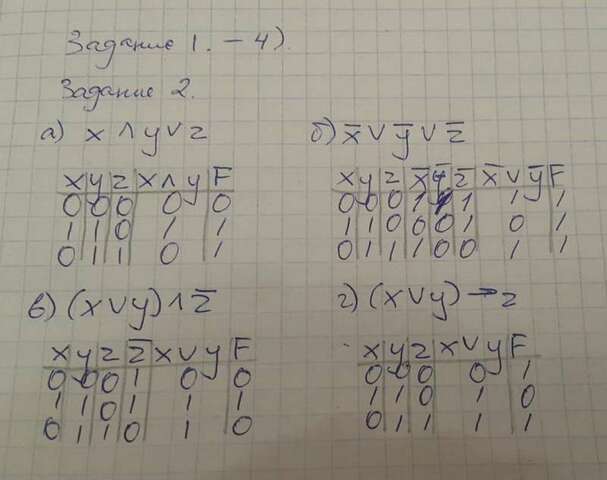 Задание 1. – 4).
Задание 2.
а) x ∧ y ∨ z
x y z x ∧ y F
0 0 0 0 0
1 1 0 1 1
0 1 1 0 1
б) x̅ ∨ y̅ ∨ z̅
x y z x̅ y̅ z̅ x̅ ∨ y̅ F
0 0 0 1 1 1 1 1
1 1 0 0 0 1 0 1
0 1 1 1 0 0 1 1
в) (x ∨ y) ∧ z̅
x y z z̅ x ∨ y F
0 0 0 1 0 0
1 1 0 1 1 1
0 1 1 0 1 0
г) (x ∨ y) → z
x y z x ∨ y F
0 0 0 0 1
1 1 0 1 0
0 1 1 1 1